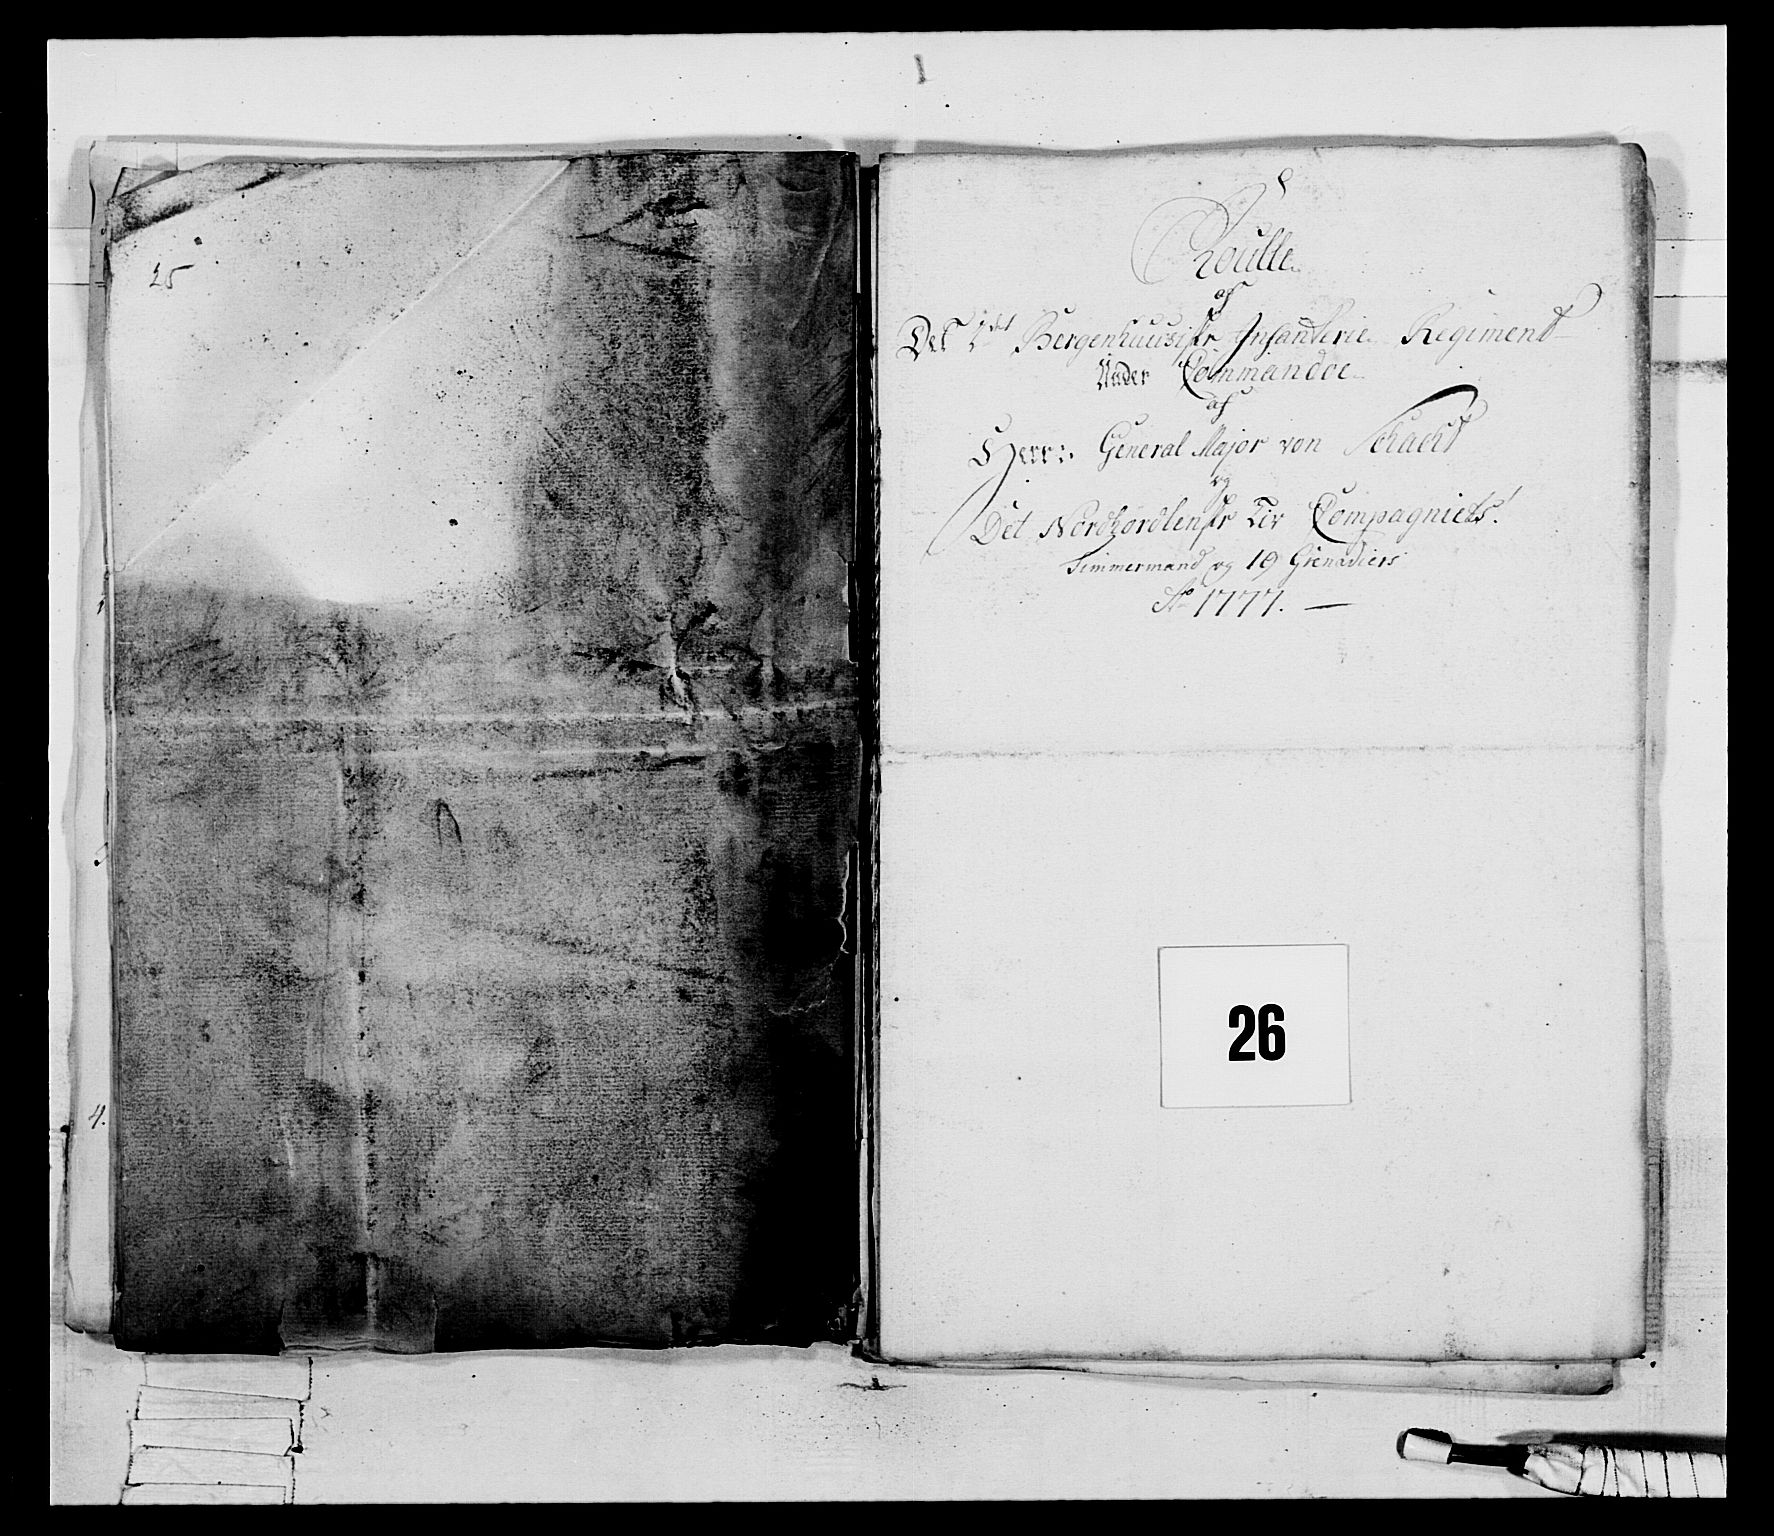 25
4.
Roulle
af
Det 2det Bergenhuusiske Infanterie Regiment
Under Commandoe
af
Herr: General Major von Schacht
og
Det Nordhordlenske Liv Compagniets
Timmermand og 19 Grenadiers
Ao 1777. —
26